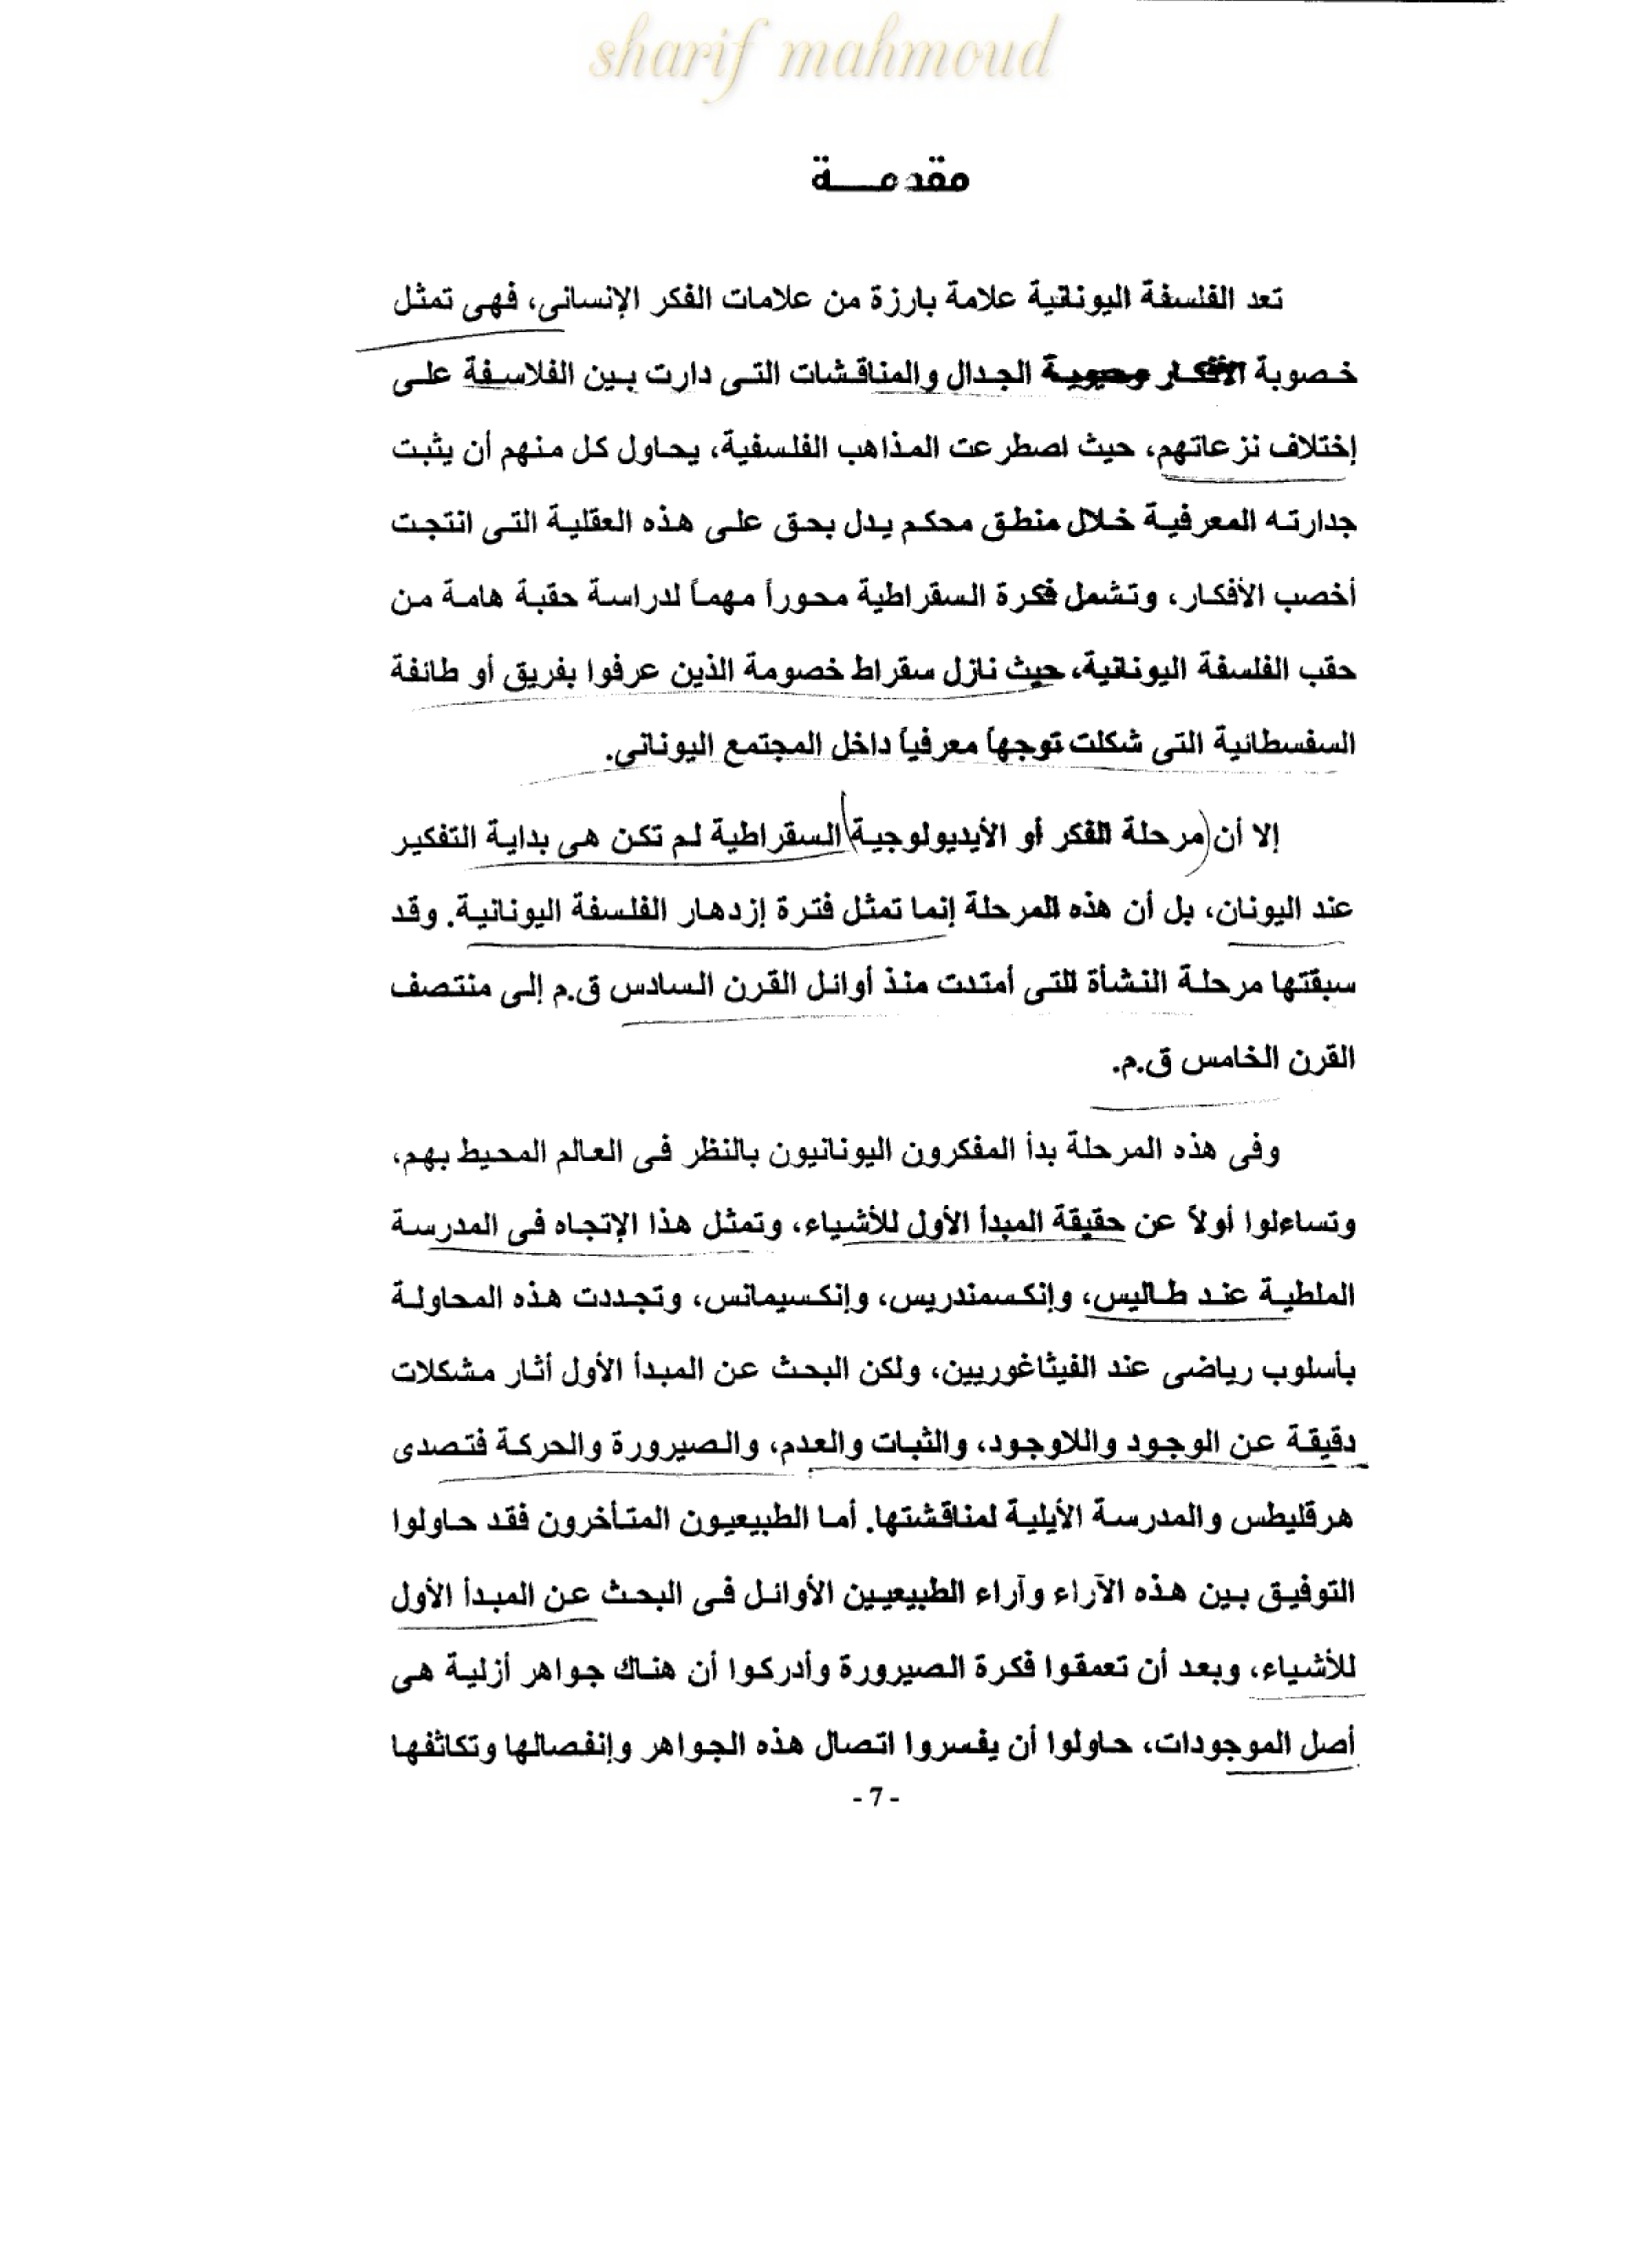 sharif mahmoud
مقدمـــة
تعد الفلسفة اليونانية علامة بارزة من علامات الفكر الإنسانى، فهى تمثل
خصوبة الأفكار وحيوية الجدال والمناقشات التى دارت بين الفلاسفة على
إختلاف نزعاتهم، حيث اصطرعت المذاهب الفلسفية، يحاول كل منهم أن يثبت
جدارته المعرفية خلال منطق محكم يدل بحق على هذه العقلية التى انتجت
أخصب الأفكار، وتشمل فكرة السقراطية محوراً مهماً لدراسة حقبة هامة من
حقب الفلسفة اليونانية، حيث نازل سقراط خصومة الذين عرفوا بفريق أو طائفة
السفسطائية التى شكلت توجهاً معرفياً داخل المجتمع اليونانى.
إلا أن (مرحلة الفكر أو الأيديولوجية) السقراطية لم تكن هى بداية التفكير
عند اليونان، بل أن هذه المرحلة إنما تمثل فترة إزدهار الفلسفة اليونانية. وقد
سبقتها مرحلة النشأة التى أمتدت منذ أوائل القرن السادس ق.م إلى منتصف
القرن الخامس ق.م.
وفى هذه المرحلة بدأ المفكرون اليونانيون بالنظر فى العالم المحيط بهم،
وتساءلوا أولاً عن حقيقة المبدأ الأول للأشياء، وتمثل هذا الإتجاه فى المدرسة
الملطية عند طاليس، وإنكسمندريس، وإنكسيمانس، وتجددت هذه المحاولة
بأسلوب رياضى عند الفيثاغوريين، ولكن البحث عن المبدأ الأول أثار مشكلات
دقيقة عن الوجود واللاوجود، والثبات والعدم، والصيرورة والحركة فتصدى
هرقليطس والمدرسة الأيلية لمناقشتها. أما الطبيعيون المتأخرون فقد حاولوا
التوفيق بين هذه الآراء وآراء الطبيعيين الأوائل فى البحث عن المبدأ الأول
للأشياء، وبعد أن تعمقوا فكرة الصيرورة وأدركوا أن هناك جواهر أزلية هى
أصل الموجودات، حاولوا أن يفسروا اتصال هذه الجواهر وإنفصالها وتكاثفها
- 7 -